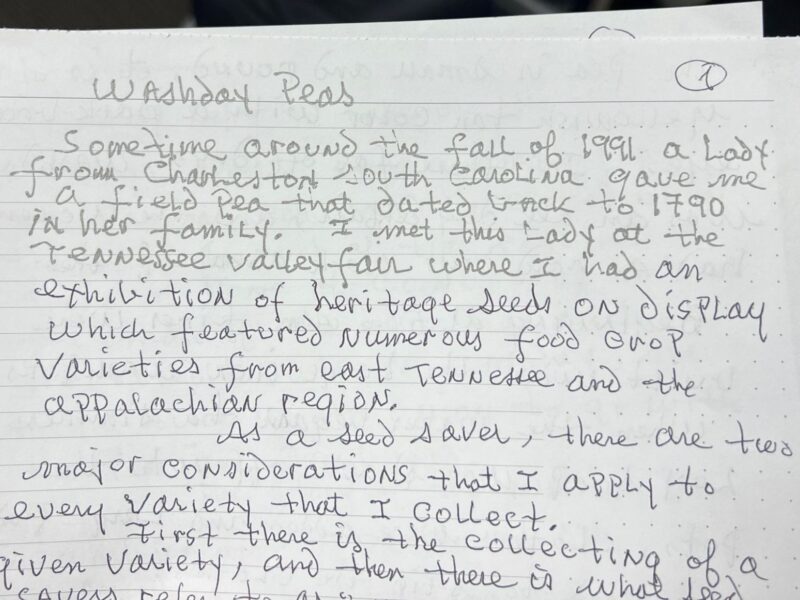 1
Washday Peas
Sometime around the fall of 1991 a Lady
from Charleston South Carolina gave me
a field Pea that dated back to 1790
in her family. I met this Lady at the
Tennessee valley fair where I had an
exhibition of heritage seeds on display
which featured numerous food crop
varieties from east Tennessee and the
appalachian region.
As a seed saver, there are two
major considerations that I apply to
every variety that I collect.
First there is the collecting of a
given variety, and then there is what seed
savers refer to as